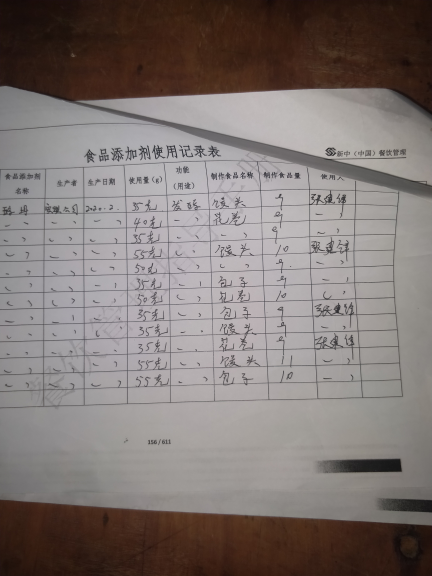 食品添加剂使用记录表
新中（中国）餐饮管理
食品添加剂名称 生产者 生产日期 使用量(g) 功能(用途) 制作食品名称 制作食品量 使用人
2020.2. 35克 发酵 馒头 9
〃 〃 〃 40克 〃 花卷 9 〃
〃 〃 〃 35克 〃 〃 9 〃
〃 〃 〃 55克 〃 馒头 10
〃 〃 〃 50克 〃 〃 9 〃
〃 〃 〃 35克 〃 包子 9 〃
〃 〃 〃 50克 〃 花卷 10 〃
〃 〃 〃 35克 〃 包子 9
〃 〃 〃 35克 〃 馒头 9 〃
〃 〃 〃 35克 〃 花卷 9
〃 〃 〃 55克 〃 馒头 11 〃
〃 〃 〃 55克 〃 包子 10 〃
156 / 611